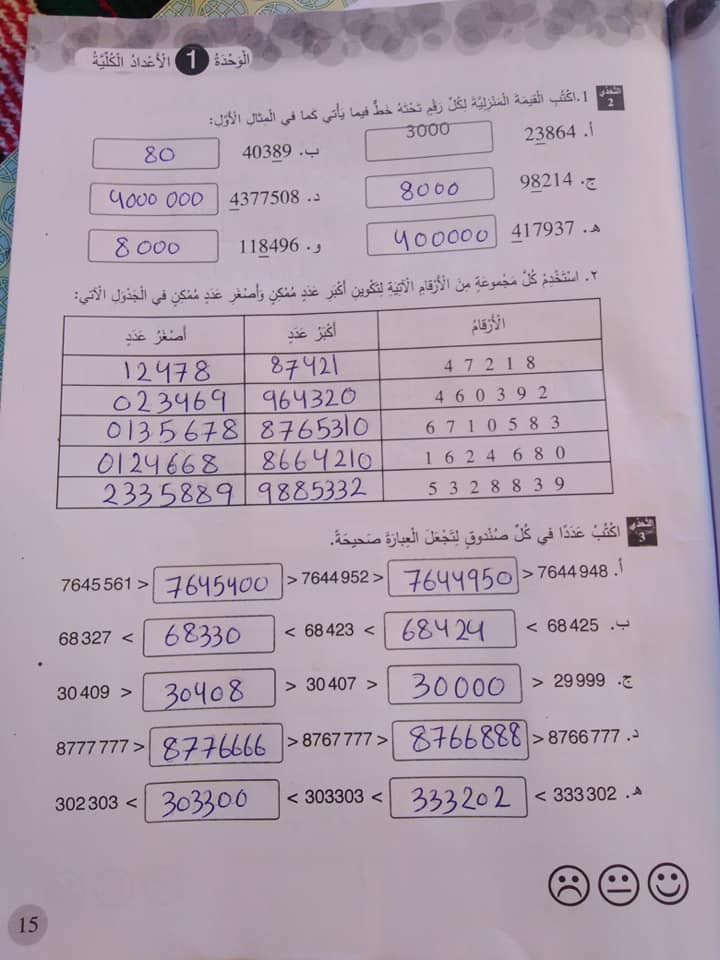 الْوَحْدَةُ 1 الْأَعْدادُ الْكُلِّيَّةُ
التَّحَدّي 2
1. اكْتُبِ الْقيمَةَ الْمَنْزِلِيَّةَ لِكُلِّ رَقْمٍ تَحْتَهُ خَطٌّ فيما يَأْتي كَما في الْمِثالِ الْأَوَّلِ:
أ. 23864 3000 ب. 40389 80
ج. 98214 8000 د. 4377508 4000 000
هـ. 417937 400000 و. 118496 8000
٢. اسْتَخْدِمْ كُلَّ مَجْموعَةٍ مِنَ الْأَرْقامِ الْآتِيَةِ لِتَكْوينِ أَكْبَرِ عَدَدٍ مُمْكِنٍ وَأَصْغَرِ عَدَدٍ مُمْكِنٍ في الْجَدْوَلِ الْآتي:
الْأَرْقامُ أَكْبَرُ عَدَدٍ أَصْغَرُ عَدَدٍ
4 7 2 1 8 87421 12478
4 6 0 3 9 2 964320 023469
6 7 1 0 5 8 3 8765310 0135678
1 6 2 4 6 8 0 8664210 0124668
5 3 2 8 8 3 9 9885332 2335889
التَّحَدّي 3
اكْتُبْ عَدَدًا في كُلِّ صُنْدوقٍ لِتَجْعَلَ الْعِبارَةَ صَحيحَةً.
أ. 7645 561 > 7645400 > 7644 952 > 7644950 > 7644 948
ب. 68 327 < 68330 < 68 423 < 68424 < 68 425
ج. 30 409 > 30408 > 30 407 > 30000 > 29 999
د. 8777 777 > 8776666 > 8767 777 > 8766888 > 8766 777
هـ. 302 303 < 303300 < 303303 < 333202 < 333 302
15